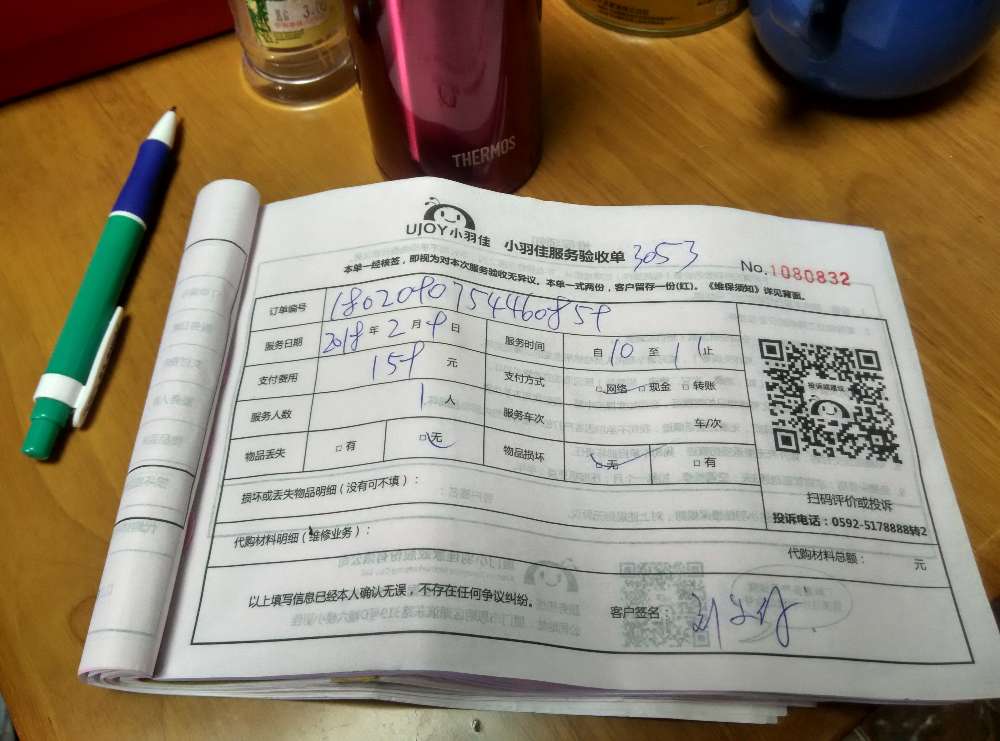 3.00
THERMOS
UJOY小羽佳 小羽佳服务验收单 3053
No.1080832
本单一经核签，即视为对本次服务验收无异议。本单一式两份，客户留存一份(红)。《维保须知》详见背面。
订单编号 1802090754460859
服务日期 2018 年 2 月 9 日 服务时间 自 10 至 11 止
支付费用 159 元 支付方式 □网络 □现金 □转账
服务人数 1 人 服务车次 车/次
物品丢失 □有 □无 物品损坏 □无 □有
投诉或建议
扫码评价或投诉
投诉电话：0592-5178888转2
损坏或丢失物品明细（没有可不填）：
代购材料明细（维修业务）： 代购材料总额： 元
以上填写信息已经本人确认无误，不存在任何争议纠纷。 客户签名：